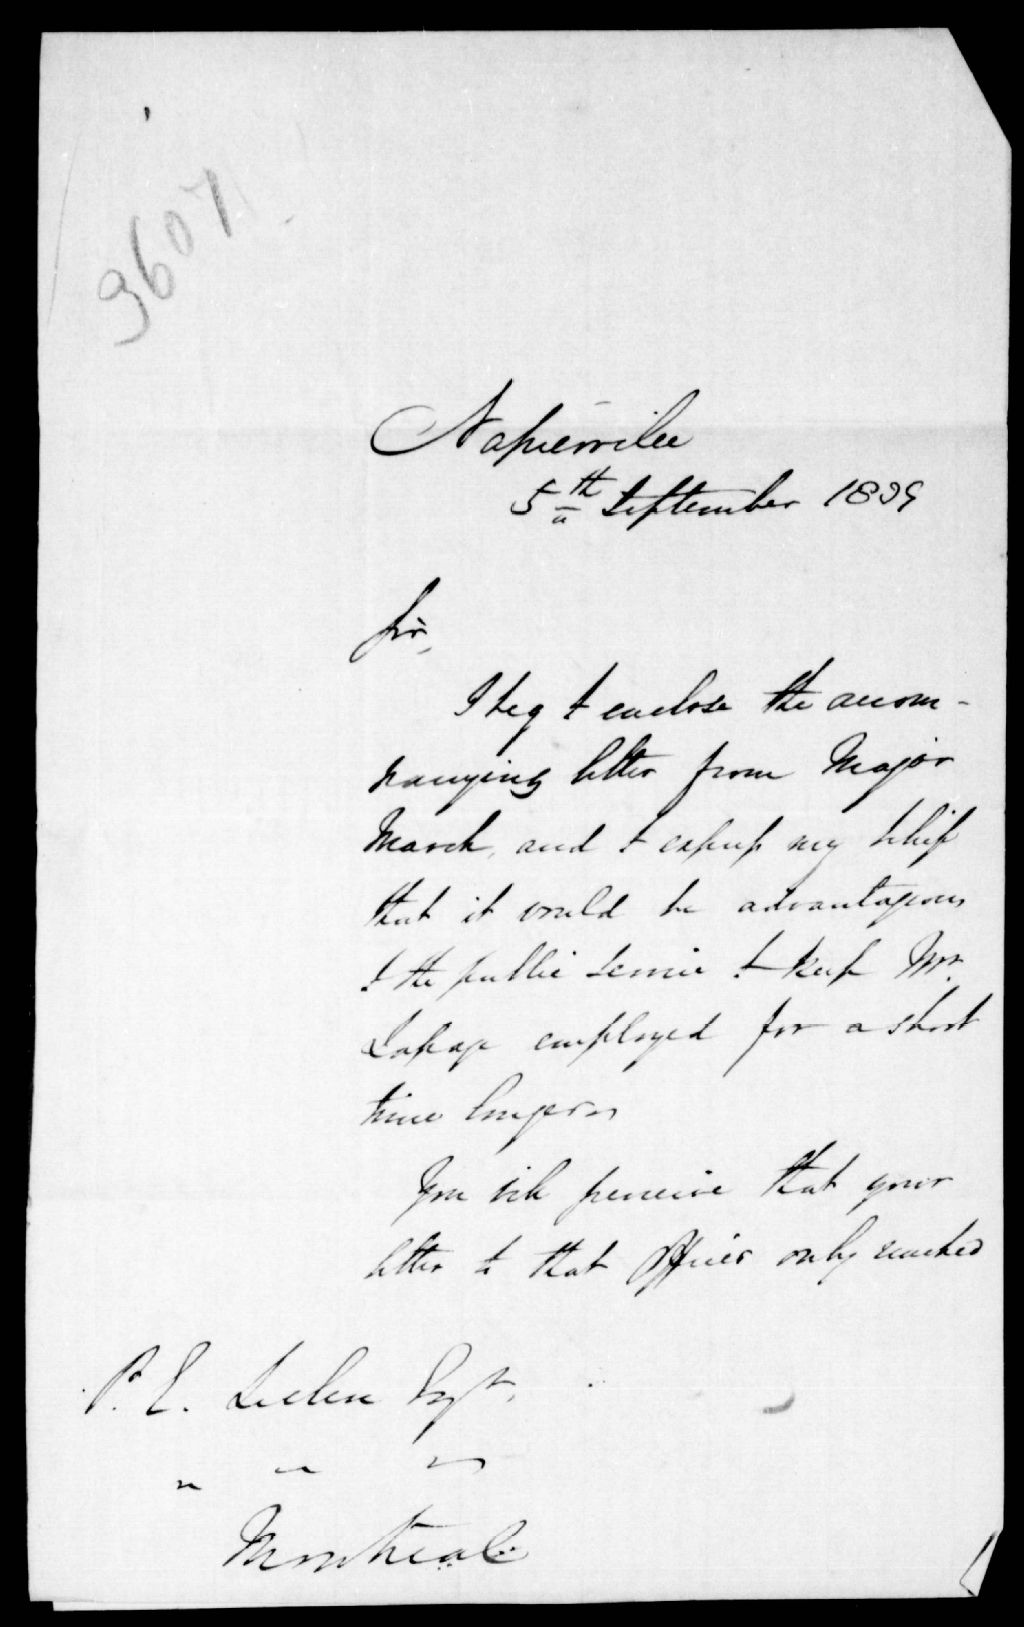 3607
Napierville
5th September 1839
Sir,
I beg to enclose the accom-
panying letter from Major
March, and to express my belief
that it would be advantageous
to the public service to keep Mr.
employed for a short
time longer
You will perceive that your
letter to that Officer only reached
P. E. Leclere Esqr.
" " "
Montreal